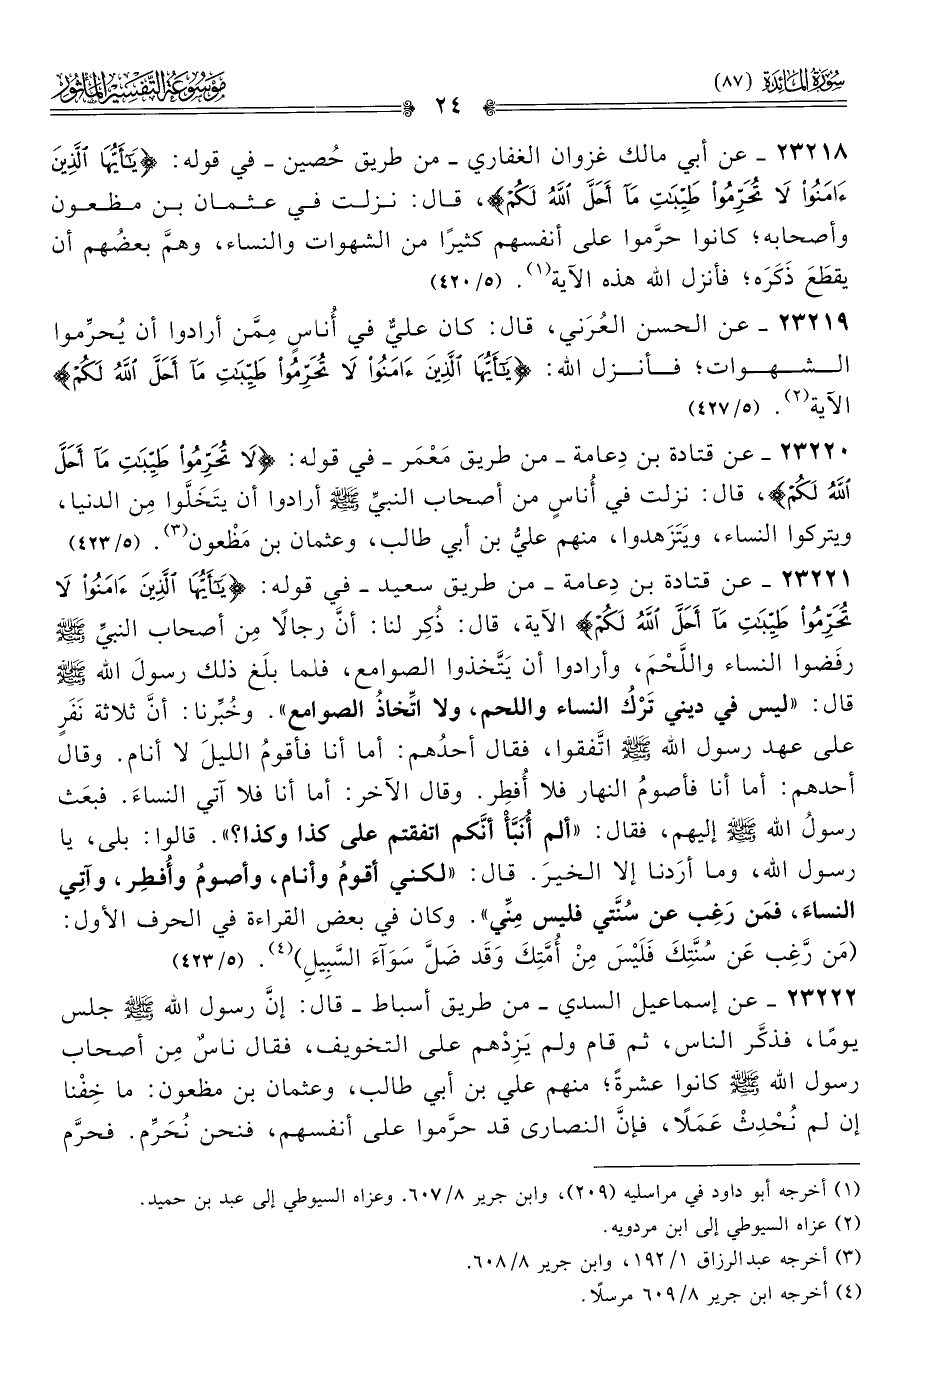 سُورَةُ المَائِدَة (٨٧)
٢٤
مَوْسُوعَةُ التَّفْسِيرِ المَأْثُور
٢٣٢١٨ ـ عن أبي مالك غزوان الغفاري ـ من طريق حُصين ـ في قوله: ﴿يَٰٓأَيُّهَا ٱلَّذِينَ
ءَامَنُواْ لَا تُحَرِّمُواْ طَيِّبَٰتِ مَآ أَحَلَّ ٱللَّهُ لَكُمْ﴾، قال: نزلت في عثمان بن مظعون
وأصحابه؛ كانوا حرَّموا على أنفسهم كثيرًا من الشهوات والنساء، وهمَّ بعضُهم أن
يقطَعَ ذَكَرَه؛ فأنزل الله هذه الآية(١). (٥/ ٤٢٠)
٢٣٢١٩ ـ عن الحسن العُرَني، قال: كان عليٌّ في أُناسٍ مِمَّن أرادوا أن يُحرِّموا
الشهوات؛ فأنزل الله: ﴿يَٰٓأَيُّهَا ٱلَّذِينَ ءَامَنُواْ لَا تُحَرِّمُواْ طَيِّبَٰتِ مَآ أَحَلَّ ٱللَّهُ لَكُمْ﴾
الآية(٢). (٥/ ٤٢٧)
٢٣٢٢٠ ـ عن قتادة بن دِعامة ـ من طريق مَعْمَر ـ في قوله: ﴿لَا تُحَرِّمُواْ طَيِّبَٰتِ مَآ أَحَلَّ
ٱللَّهُ لَكُمْ﴾، قال: نزلت في أُناسٍ من أصحاب النبيِّ ﷺ أرادوا أن يتَخَلَّوا مِن الدنيا،
ويتركوا النساء، ويَتَزهدوا، منهم عليُّ بن أبي طالب، وعثمان بن مَظْعون(٣). (٥/ ٤٢٣)
٢٣٢٢١ ـ عن قتادة بن دِعامة ـ من طريق سعيد ـ في قوله: ﴿يَٰٓأَيُّهَا ٱلَّذِينَ ءَامَنُواْ لَا
تُحَرِّمُواْ طَيِّبَٰتِ مَآ أَحَلَّ ٱللَّهُ لَكُمْ﴾ الآية، قال: ذُكِر لنا: أنَّ رجالًا مِن أصحاب النبيِّ ﷺ
رفَضوا النساء واللَّحْمَ، وأرادوا أن يَتَّخذوا الصوامع، فلما بلَغ ذلك رسولَ الله ﷺ
قال: «ليس في ديني تَرْكُ النساء واللحم، ولا اتِّخاذُ الصوامع». وخُبِّرنا: أنَّ ثلاثة نَفَرٍ
على عهد رسول الله ﷺ اتَّفقوا، فقال أحدُهم: أما أنا فأقومُ الليلَ لا أنام. وقال
أحدهم: أما أنا فأصومُ النهار فلا أُفطِر. وقال الآخر: أما أنا فلا آتي النساءَ. فبعَث
رسولُ الله ﷺ إليهم، فقال: «ألم أُنَبَّأْ أنَّكم اتفقتم على كذا وكذا؟». قالوا: بلى، يا
رسول الله، وما أرَدنا إلا الخيرَ. قال: «لكني أقومُ وأنام، وأصومُ وأُفطِر، وآتِي
النساءَ، فمَن رَغِب عن سُنَّتي فليس مِنِّي». وكان في بعض القراءة في الحرف الأول:
(مَن رَّغِبَ عَن سُنَّتِكَ فَلَيْسَ مِنْ أُمَّتِكَ وَقَد ضَلَّ سَوَآءَ السَّبِيلِ)(٤). (٥/ ٤٢٣)
٢٣٢٢٢ ـ عن إسماعيل السدي ـ من طريق أسباط ـ قال: إنَّ رسول الله ﷺ جلس
يومًا، فذكَّر الناس، ثم قام ولم يَزِدْهم على التخويف، فقال ناسٌ مِن أصحاب
رسول الله ﷺ كانوا عشرةً؛ منهم علي بن أبي طالب، وعثمان بن مظعون: ما خِفْنا
إن لم نُحْدِثْ عَمَلًا، فإنَّ النصارى قد حرَّموا على أنفسهم، فنحن نُحَرِّم. فحرَّم
(١) أخرجه أبو داود في مراسليه (٢٠٩)، وابن جرير ٨/ ٦٠٧. وعزاه السيوطي إلى عبد بن حميد.
(٢) عزاه السيوطي إلى ابن مردويه.
(٣) أخرجه عبدالرزاق ١/ ١٩٢، وابن جرير ٨/ ٦٠٨.
(٤) أخرجه ابن جرير ٨/ ٦٠٩ مرسلًا.